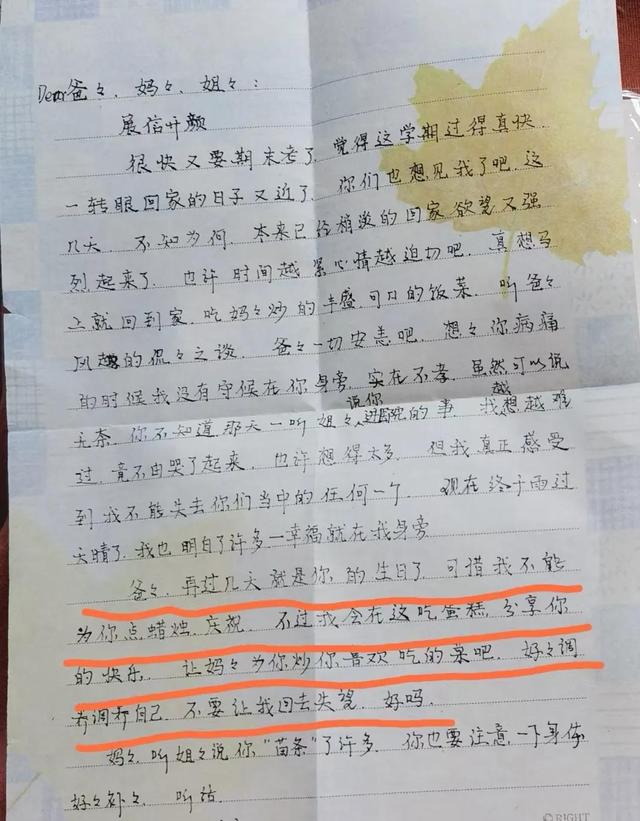 Dear爸々、妈々、姐々：
展信开颜
很快又要期末考了、觉得这学期过得真快、
一转眼回家的日子又近了、你们也想见我了吧、这
几天、不知为何、本来已经稍淡的回家欲望又强
烈起来了、也许时间越紧心情越迫切吧、真想马
上就回到家、吃妈々炒的丰盛可口的饭菜、听爸々
风趣的侃々之谈、爸々一切安恙吧、想々你病痛
的时候我没有守候在你身旁、实在不孝、虽然可以说
无奈、你不知道那天一听姐々说你的事、我越想越难
过、竟不由哭了起来、也许想得太多、但我真正感受
到我不能失去你们当中的任何一个、现在终于雨过
天晴了、我也明白了许多一幸福就在我身旁
爸々、再过几天就是你的生日了、可惜我不能
为你点蜡烛、庆祝、不过我会在这吃蛋糕、分享你
的快乐、让妈々为你炒你喜欢吃的菜吧、好々调
养调养自己、不要让我回去失望、好吗、
妈々、听姐々说你"苗条"了许多、你也要注意一下身体
好々补々、听话
©RIGHT